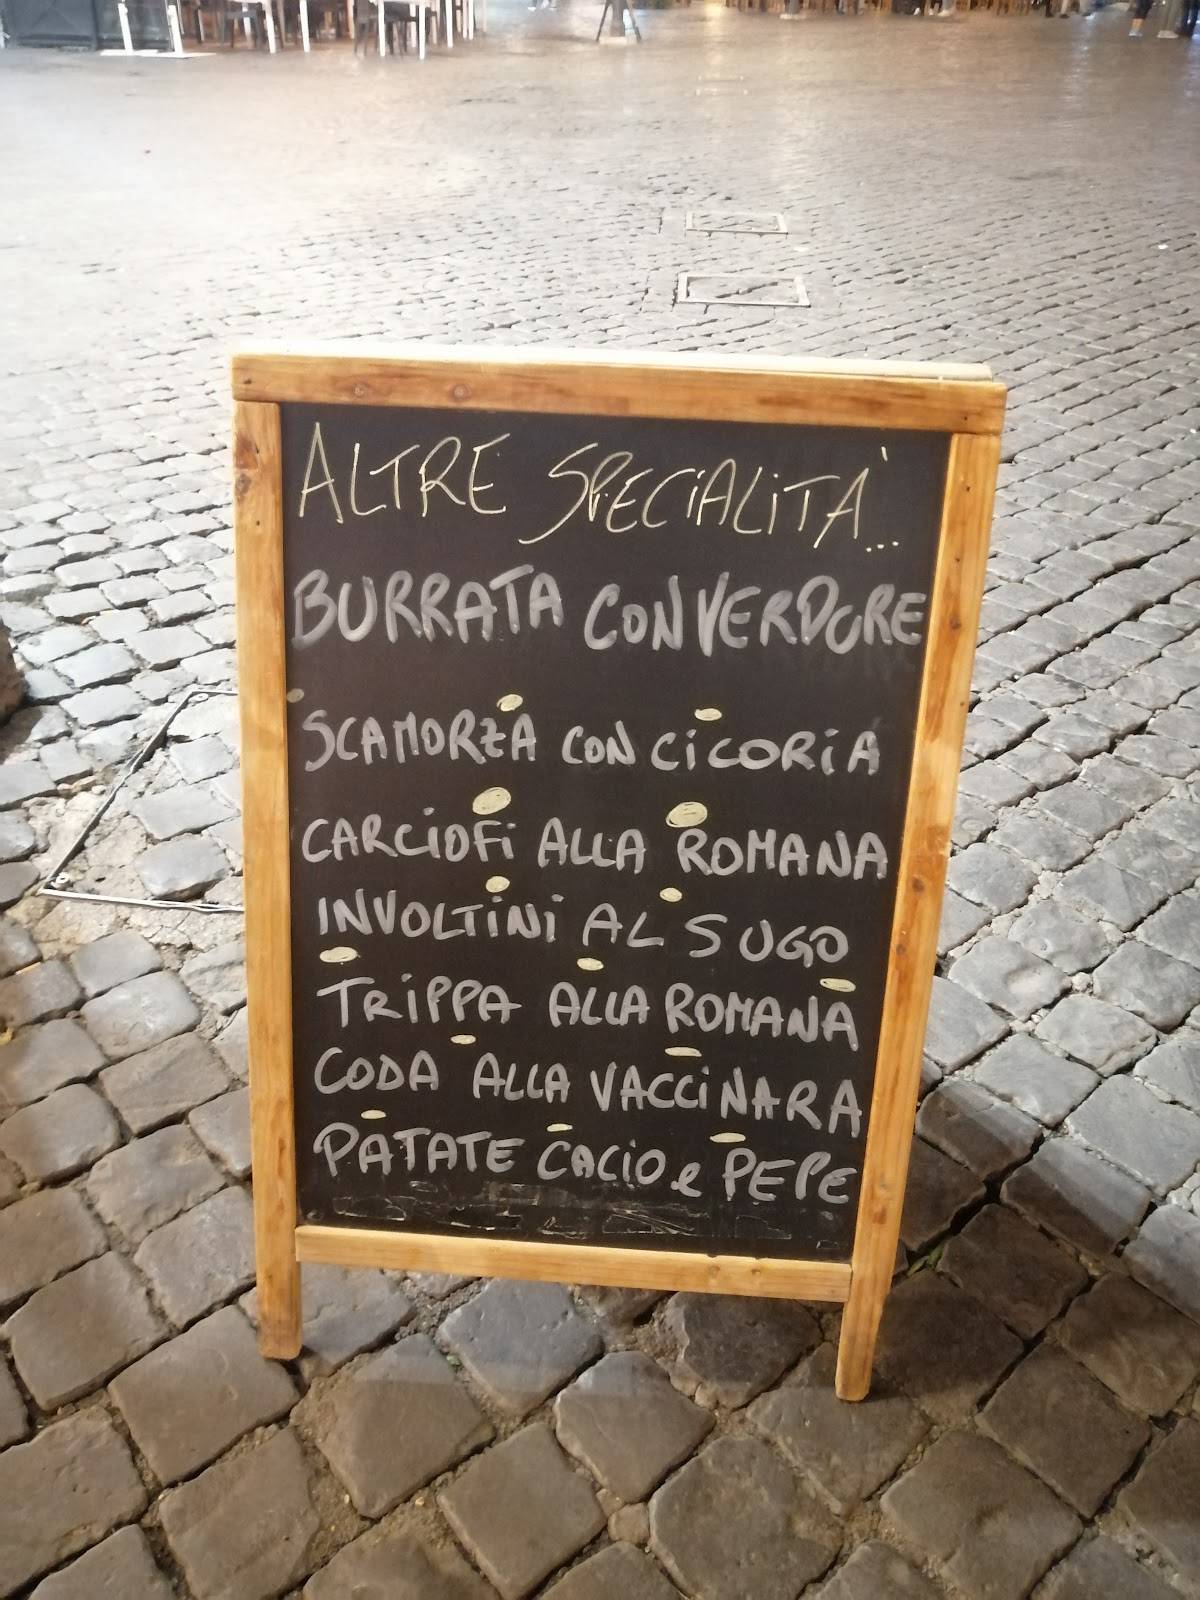 ALTRE SPECIALITÀ...
BURRATA CON VERDURE
SCAMORZA CON CICORIA
CARCIOFI ALLA ROMANA
INVOLTINI AL SUGO
TRIPPA ALLA ROMANA
CODA ALLA VACCINARA
PATATE CACIO e PEPE